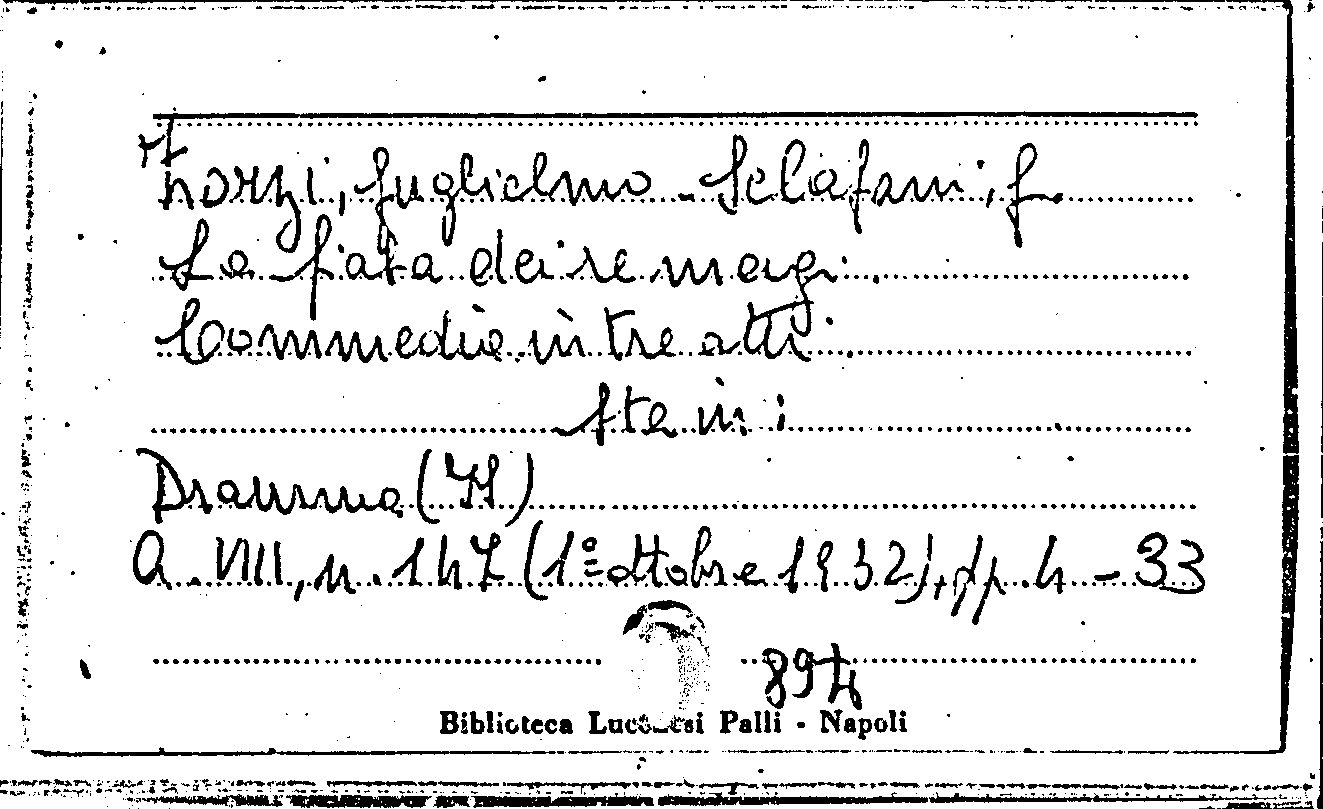 Zorzi, Guglielmo - Sclafani, G.
La fata dei re magi.
Commedia in tre atti.
Sta in:
Dramma (Il)
A. VIII, n. 147 (1º ottobre 1932), pp. 4 - 33
894
Biblioteca Lucchesi Palli - Napoli